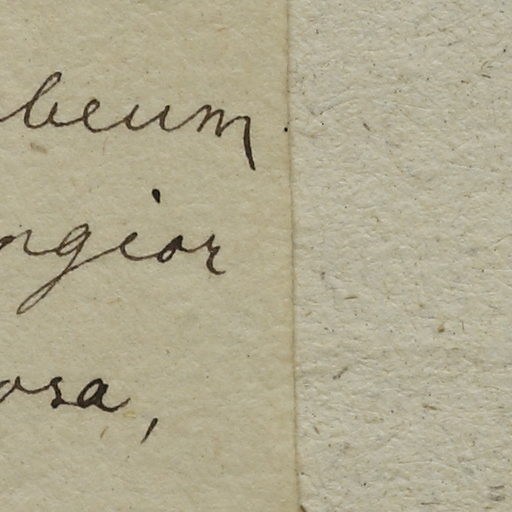 beum
ngior
osa,